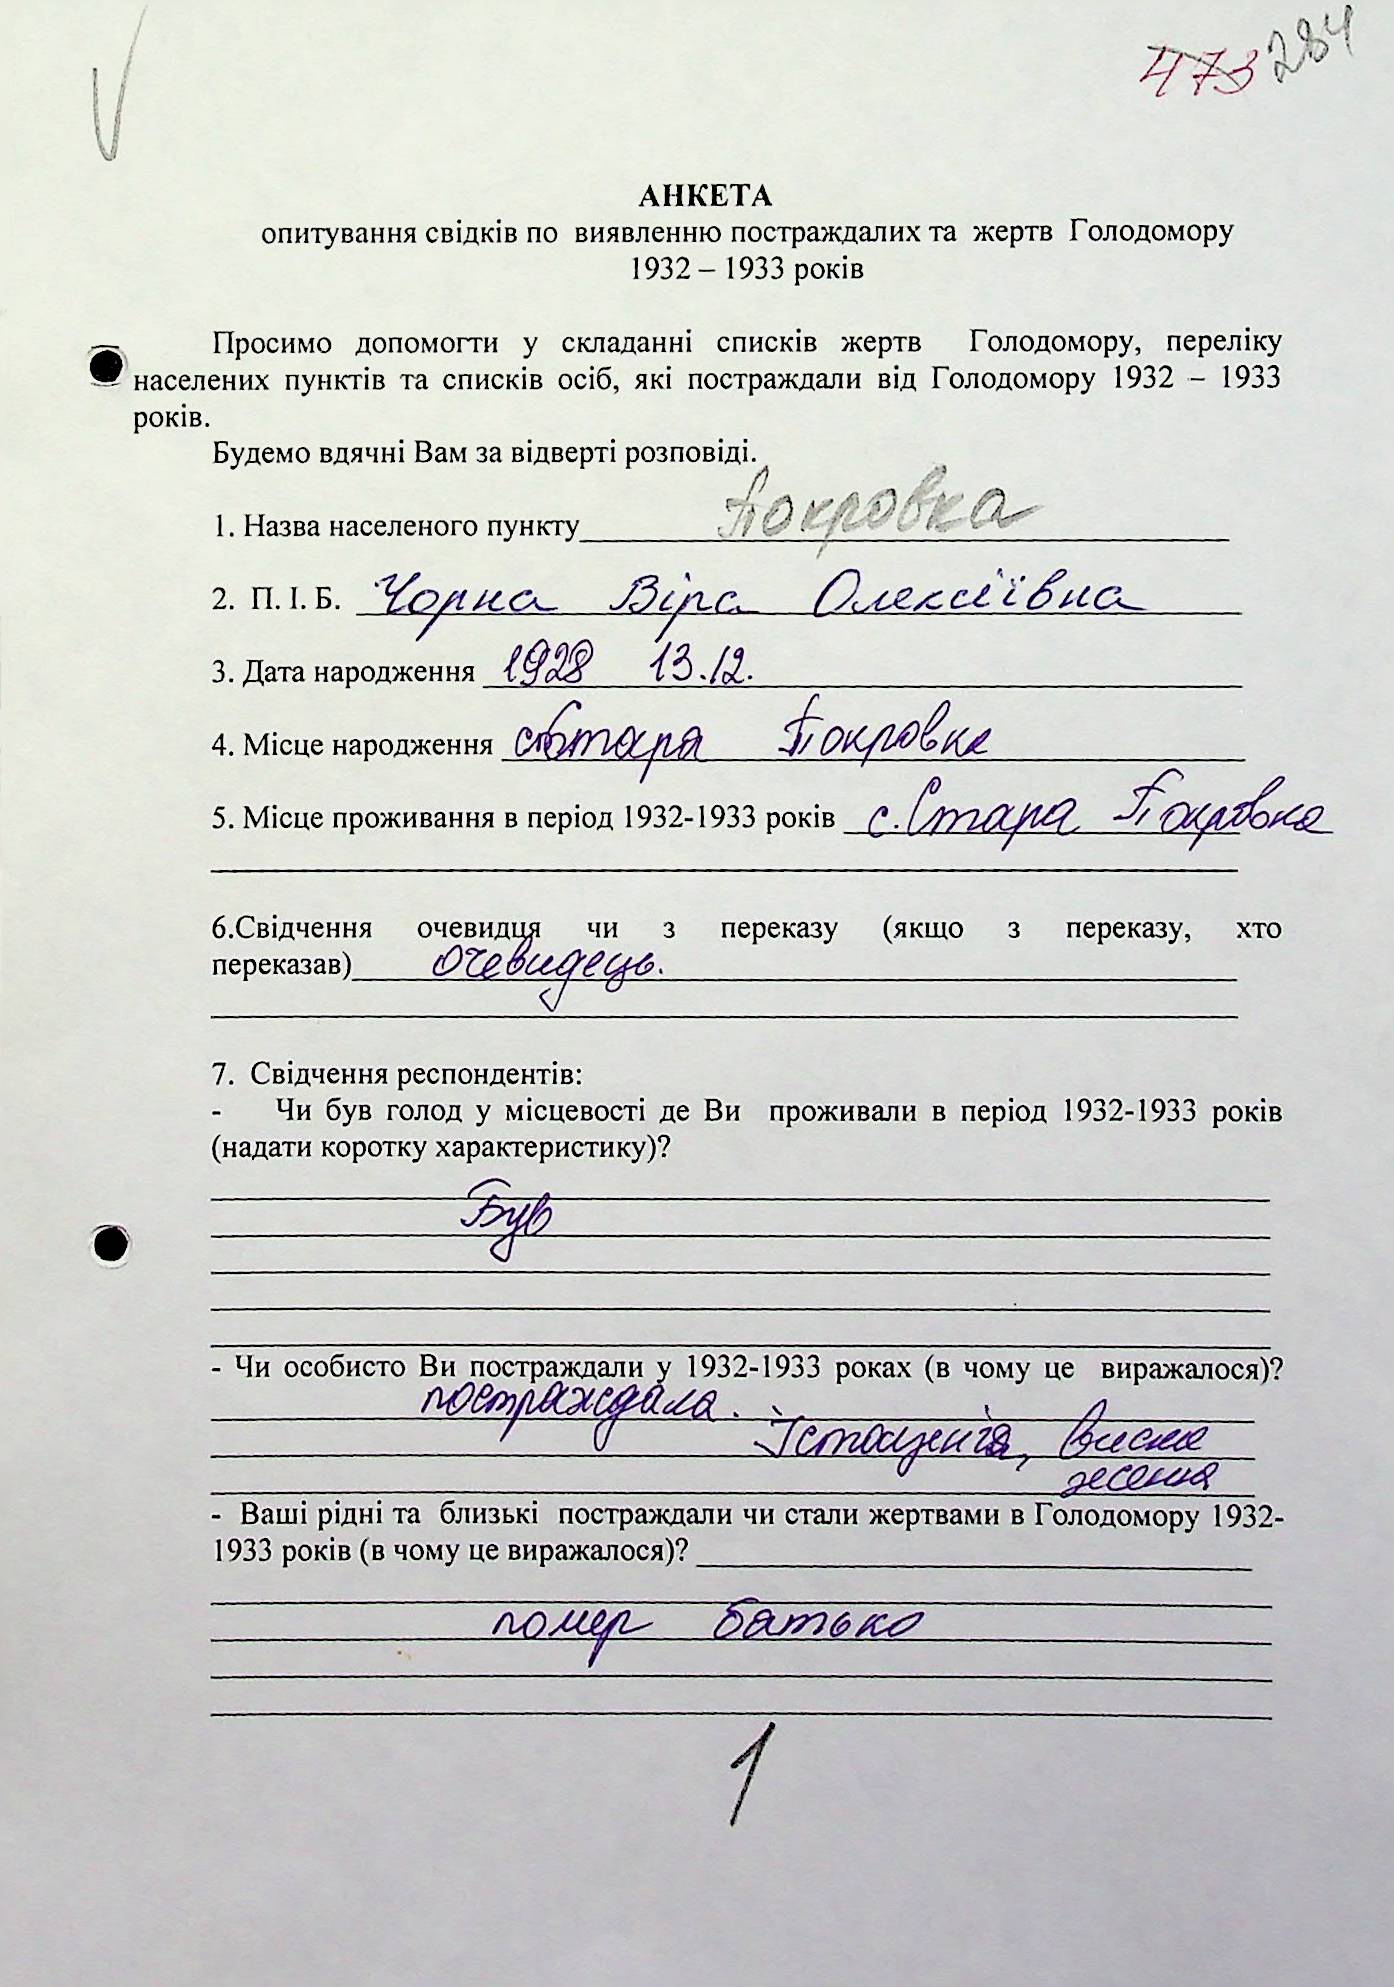 473 284
АНКЕТА
опитування свідків по виявленню постраждалих та жертв Голодомору
1932 – 1933 років
Просимо допомогти у складанні списків жертв Голодомору, переліку
населених пунктів та списків осіб, які постраждали від Голодомору 1932 – 1933
років.
Будемо вдячні Вам за відверті розповіді.
1. Назва населеного пункту Покровка
2. П. І. Б. Чорна Віра Олексіївна
3. Дата народження 1928 13.12.
4. Місце народження Стара Покровка
5. Місце проживання в період 1932-1933 років с. Стара Покровка
6.Свідчення очевидця чи з переказу (якщо з переказу, хто
переказав) очевидець.
7. Свідчення респондентів:
- Чи був голод у місцевості де Ви проживали в період 1932-1933 років
(надати коротку характеристику)?
Був
- Чи особисто Ви постраждали у 1932-1933 роках (в чому це виражалося)?
постраждала.
виснаження
- Ваші рідні та близькі постраждали чи стали жертвами в Голодомору 1932-
1933 років (в чому це виражалося)?
помер батько
1